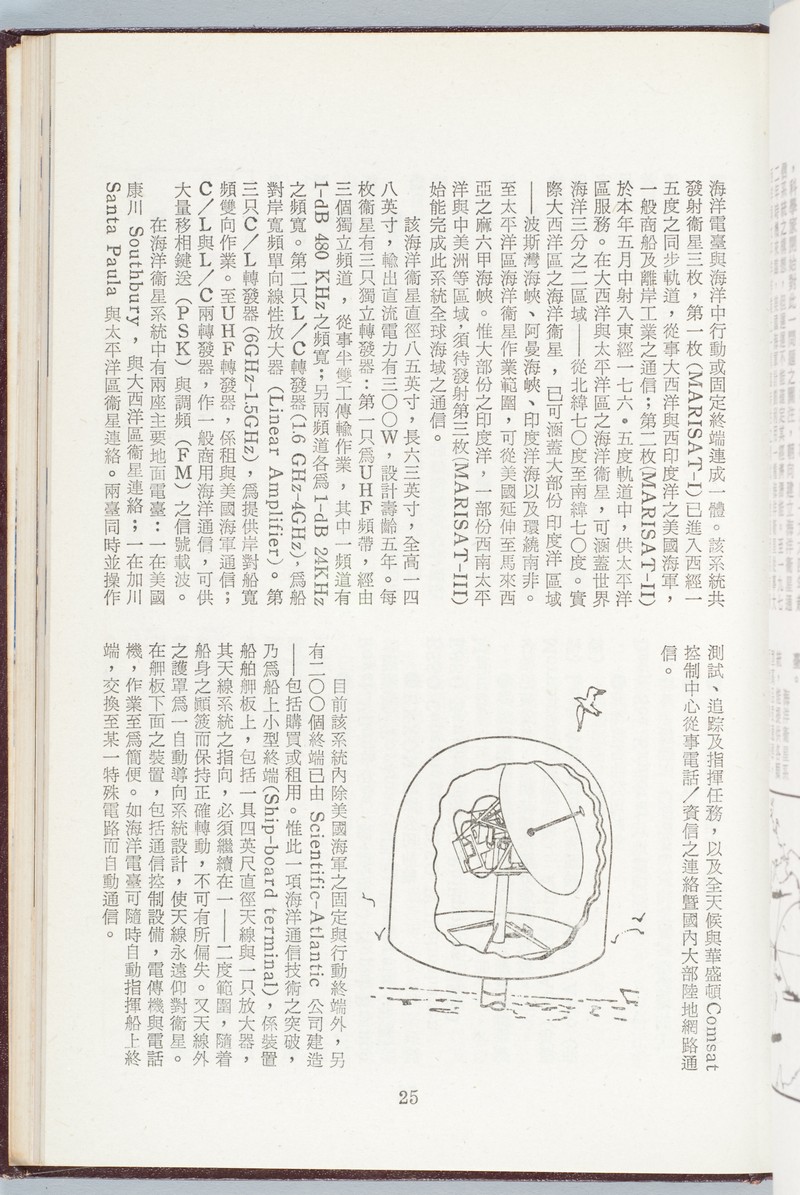 海洋電臺與海洋中行動或固定終端連成一體。該系統共
發射衞星三枚，第一枚（MARISAT-I）已進入西經一
五度之同步軌道，從事大西洋與西印度洋之美國海軍，
一般商船及離岸工業之通信；第二枚（MARISAT-II）
於本年五月中射入東經一七六。五度軌道中，供太平洋
區服務。在大西洋與太平洋區之海洋衞星，可涵蓋世界
海洋三分之二區域——從北緯七〇度至南緯七〇度。實
際大西洋區之海洋衞星，已可涵蓋大部份印度洋區域
——波斯灣海峽、阿曼海峽、印度洋海以及環繞南非。
至太平洋區海洋衞星作業範圍，可從美國延伸至馬來西
亞之麻六甲海峽。惟大部份之印度洋，一部份西南太平
洋與中美洲等區域，須待發射第三枚（MARISAT-III）
始能完成此系統全球海域之通信。
該海洋衞星直徑八五英寸，長六三英寸，全高一四
八英寸，輸出直流電力有三〇〇W，設計壽齡五年。每
枚衞星有三只獨立轉發器：第一只爲UHF頻帶，經由
三個獨立頻道，從事半雙工傳輸作業，其中一頻道有
1-dB 480 KHz之頻寬；另兩頻道各爲1-dB 24KHz
之頻寬。第二只L／C轉發器（1.6 GHz-4GHz），爲船
對岸寬頻單向線性放大器（Linear Amplifier）。第
三只C／L轉發器（6GHz-1.5GHz），爲提供岸對船寬
頻雙向作業。至UHF轉發器，係租與美國海軍通信；
C／L與L／C兩轉發器，作一般商用海洋通信，可供
大量移相鍵送（PSK）與調頻（FM）之信號載波。
在海洋衞星系統中有兩座主要地面電臺：一在美國
康川 Southbury，與大西洋區衞星連絡；一在加川
Santa Paula 與太平洋區衞星連絡。兩臺同時並操作
測試、追踪及指揮任務，以及全天候與華盛頓Comsat
控制中心從事電話／資信之連絡暨國內大部陸地網路通
信。
目前該系統內除美國海軍之固定與行動終端外，另
有二〇〇個終端已由 Scientific-Atlantic 公司建造
——包括購買或租用。惟此一項海洋通信技術之突破，
乃爲船上小型終端（Ship-board terminal），係裝置
船舶舺板上，包括一具四英尺直徑天線與一只放大器，
其天線系統之指向，必須繼續在一——二度範圍，隨着
船身之顚簸而保持正確轉動，不可有所偏失。又天線外
之護罩爲一自動導向系統設計，使天線永遠仰對衞星。
在舺板下面之裝置，包括通信控制設備，電傳機與電話
機，作業至爲簡便。如海洋電臺可隨時自動指揮船上終
端，交換至某一特殊電路而自動通信。
25